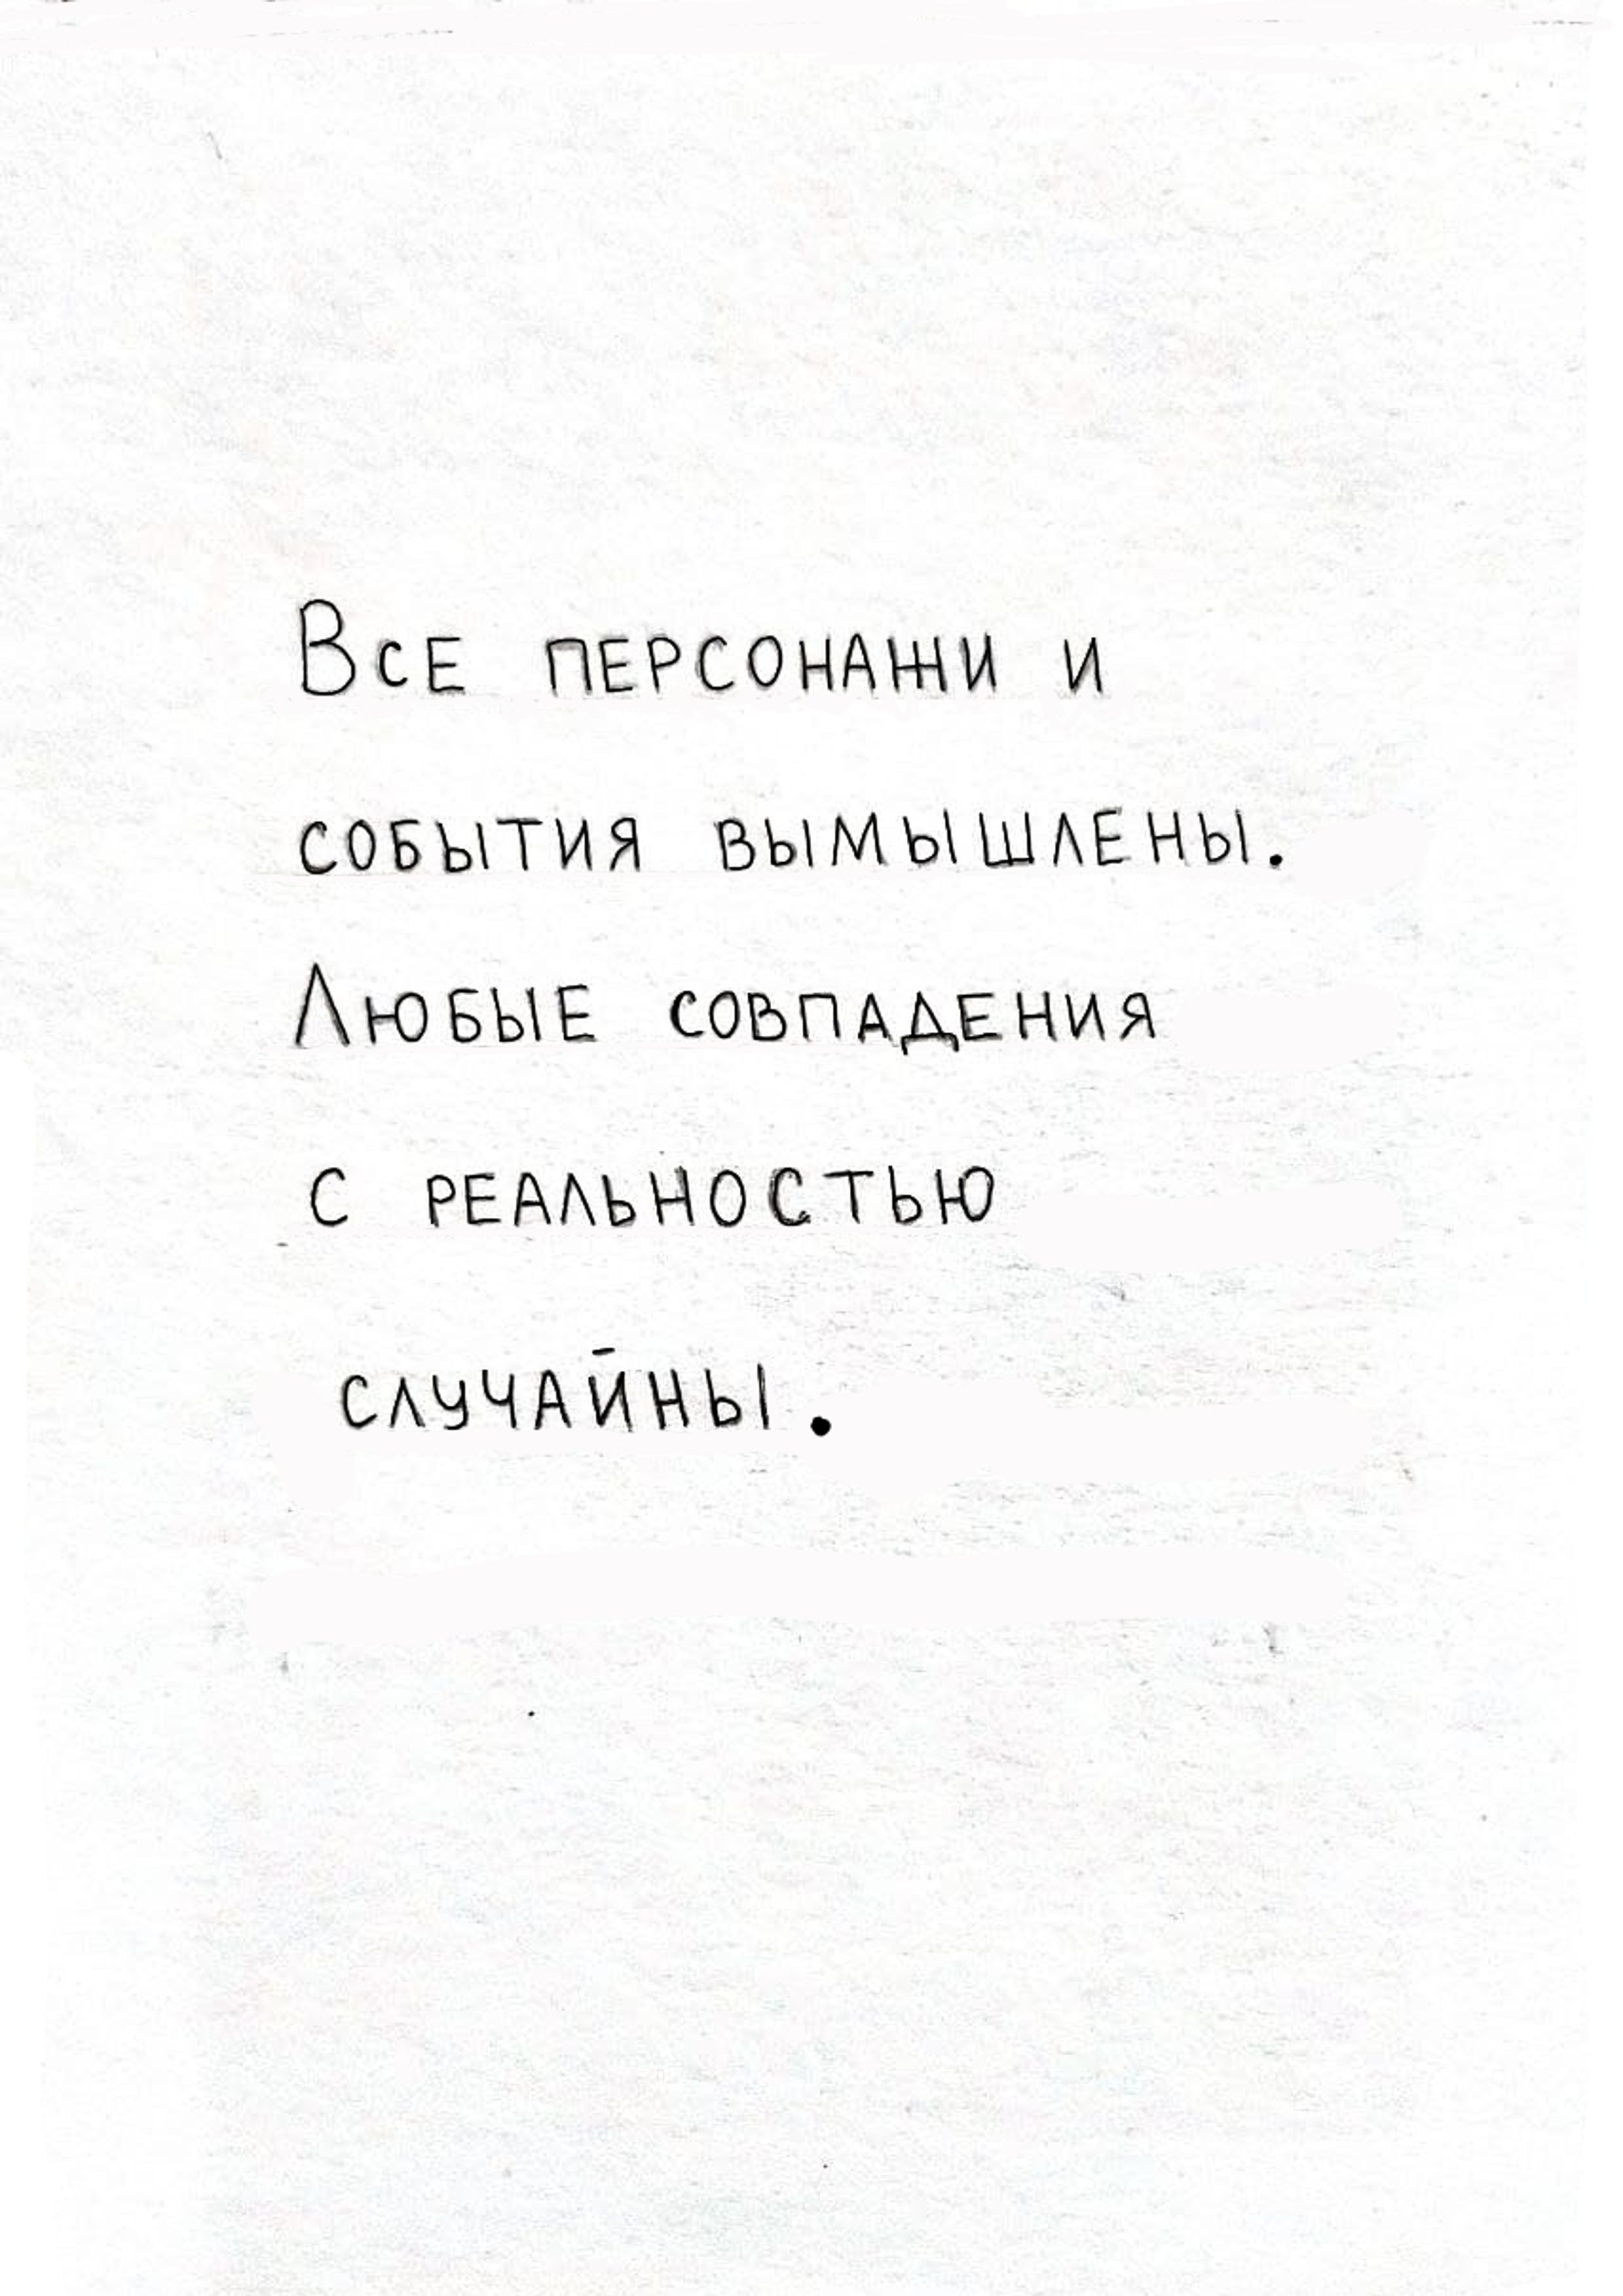 Все персонажи и
события вымышлены.
Любые совпадения
с реальностью
случайны.